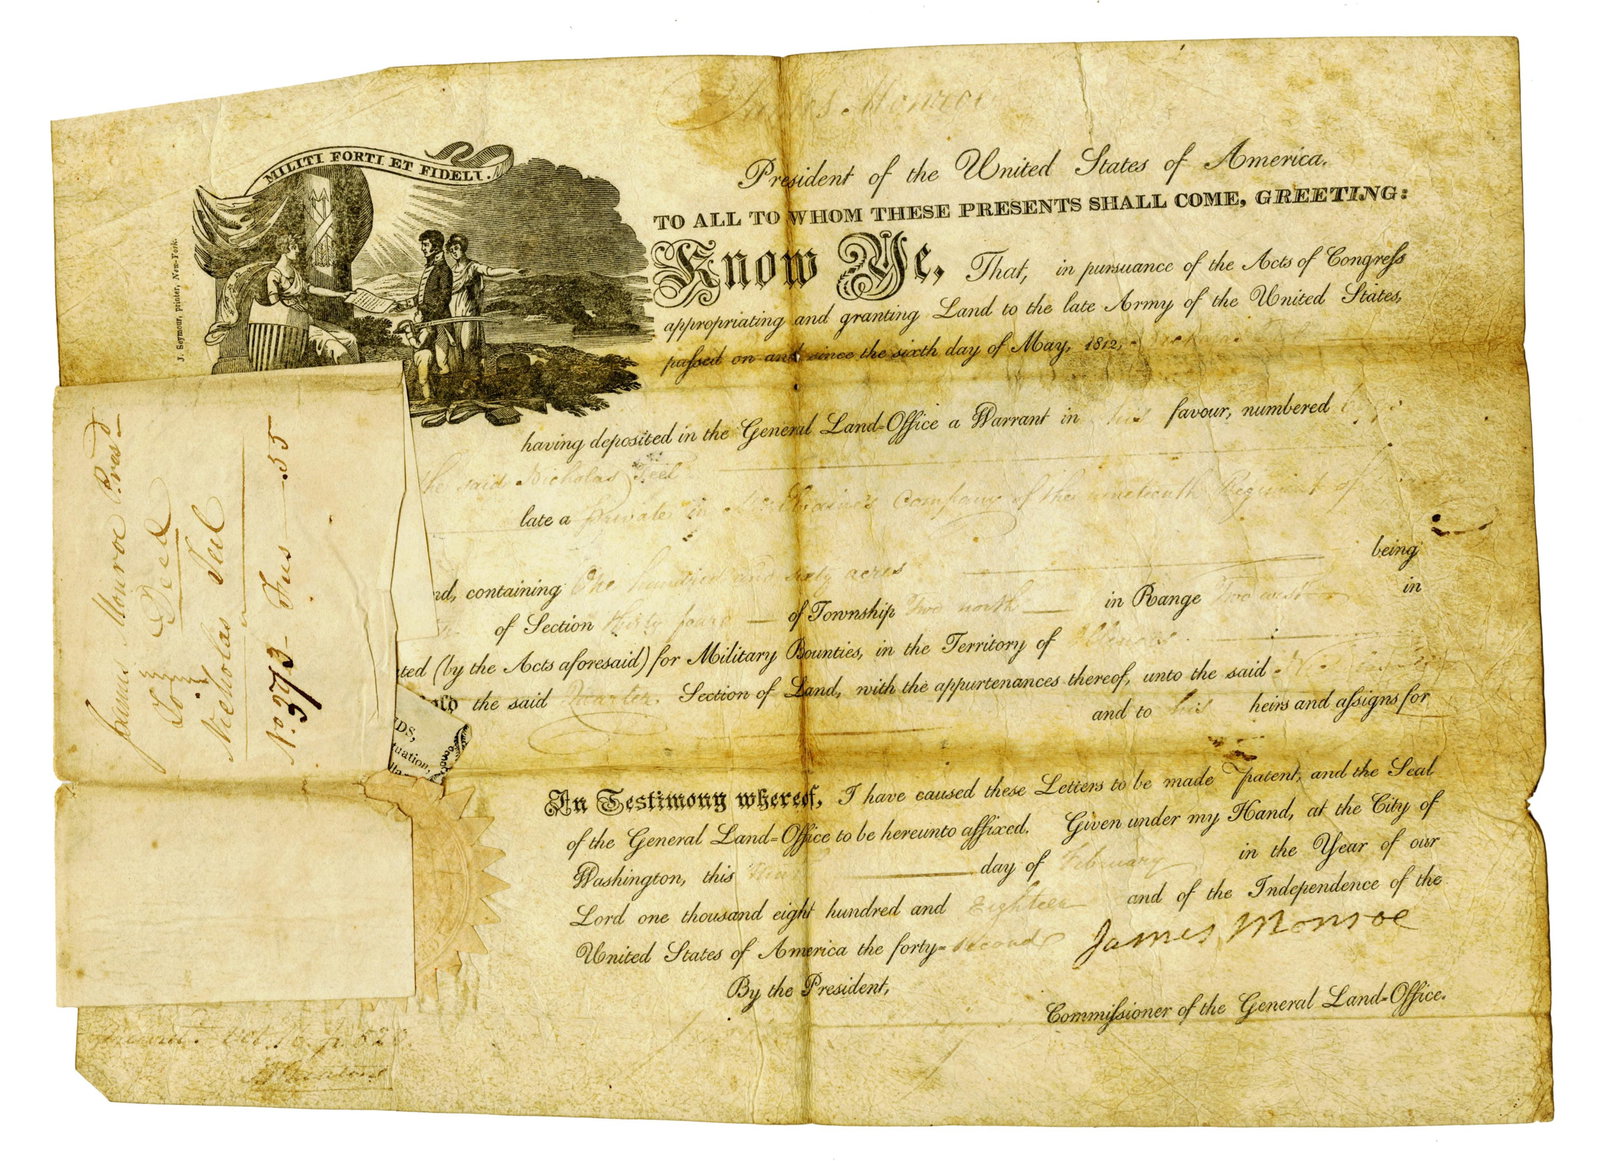 James Monroe
President of the United States of America,
TO ALL TO WHOM THESE PRESENTS SHALL COME, GREETING:
Know Ye, That, in pursuance of the Acts of Congress
appropriating and granting Land to the late Army of the United States,
passed on and since the sixth day of May, 1812, Nicholas
having deposited in the General Land-Office a Warrant in his favour, numbered
the said Nicholas Teel
late a private in Company of the nineteenth Regiment of
nd, containing One hundred and sixty acres being
of Section thirty four of Township Two north in Range Two west in
ted (by the Acts aforesaid) for Military Bounties, in the Territory of Illinois
unto the said
the said Quarter Section of Land, with the appurtenances thereof,
and to his heirs and assigns for
In Testimony whereof, I have caused these Letters to be made Patent, and the Seal
of the General Land-Office to be hereunto affixed. Given under my Hand, at the City of
Washington, this day of February in the Year of our
Lord one thousand eight hundred and Eighteen and of the Independence of the
United States of America the forty-second
James Monroe
By the President,
Commissioner of the General Land-Office.
MILITI FORTI ET FIDELI.
J. Seymour, printer, New-York.
James Monroe Presd
To Deed
Nicholas Teel
No. 373 Fus 55
DS,
uation,
vol. 10. p. 528